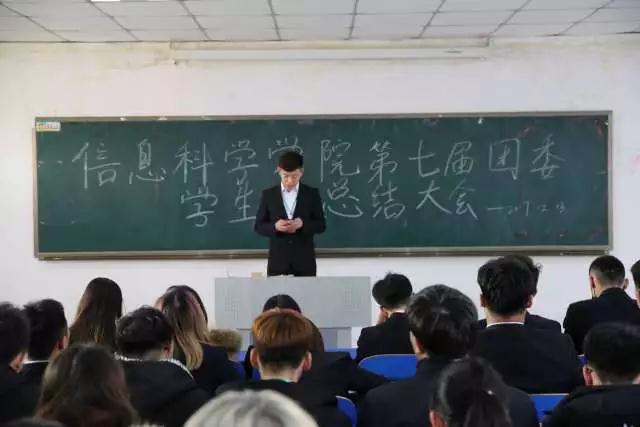 信息科学学院第七届团委
学生总结大会